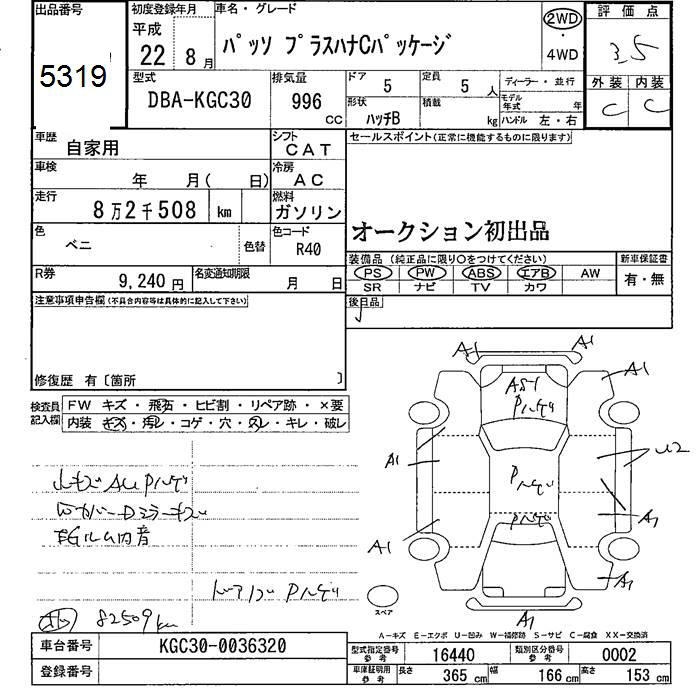 出品番号
5319
初度登録年月
平成
22 8月
車名・グレード
パッソ プラスハナCパッケージ
2WD
・
4WD
評価点
3.5
外装 内装
C C
型式
DBA-KGC30
排気量
996
CC
ドア 5
定員 5人
ディーラー・並行
形状
ハッチB
積載
kg
モデル年式 年
ハンドル 左・右
車歴
自家用
シフト
CAT
セールスポイント(正常に機能するものに限ります)
車検
年 月( 日)
冷房
AC
走行
8万2千508 km
燃料
ガソリン
オークション初出品
色
ベニ
色替
色コード
R40
装備品(純正品に限り○をつけてください)
新車保証書
PS PW ABS エアB AW
SR ナビ TV カワ
有・無
R券
9,240円
名変通知期限
月 日
後日品
注意事項申告欄(不具合内容等は具体的に記入して下さい)
修復歴 有〔箇所 〕
検査員
記入欄
FW キズ・飛石・ヒビ割・リペア跡・×要
内装 キズ・汚レ・コゲ・穴・スレ・キレ・破レ
82509km
A1 A1
A1
A1
U2
A1
A1
A1
A1
スペア
A−キズ E−エクボ U−凹み W−補修跡 S−サビ C−腐食 XX−交換済
車台番号
KGC30-0036320
登録番号
型式指定番号
参考
16440
類別区分番号
参考
0002
車庫証明用
参考
長さ 365 cm
幅 166 cm
高さ 153 cm